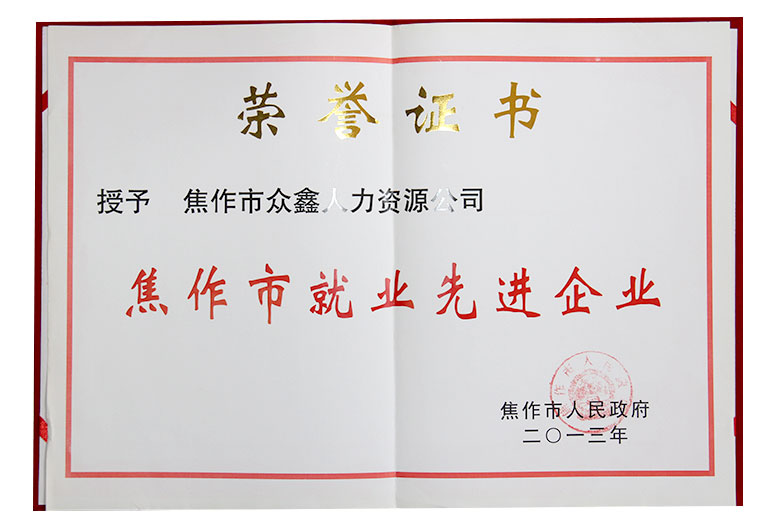 荣誉证书
授予 焦作市众鑫人力资源公司
焦作市就业先进企业
焦作市人民政府
二〇一三年